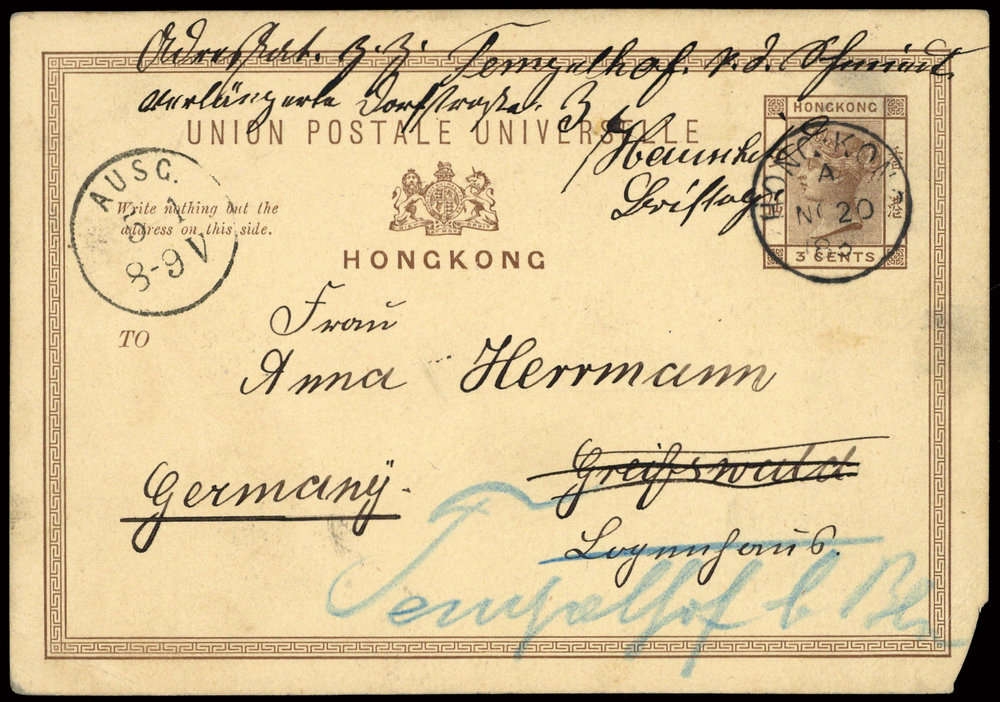 Adressat. z. Z. Tempelhof. v. d. Schmidt.
verlängerte Dorfstrasse. 3
UNION POSTALE UNIVERSELLE
HONGKONG
HONGKONG
A
NO 20
3 CENTS
AUSG.
5 1
8-9 V
Write nothing but the
address on this side.
HONGKONG
TO
Frau
Anna Herrmann
Greifswald
Germany.
Logenhaus.
Tempelhof b Bln